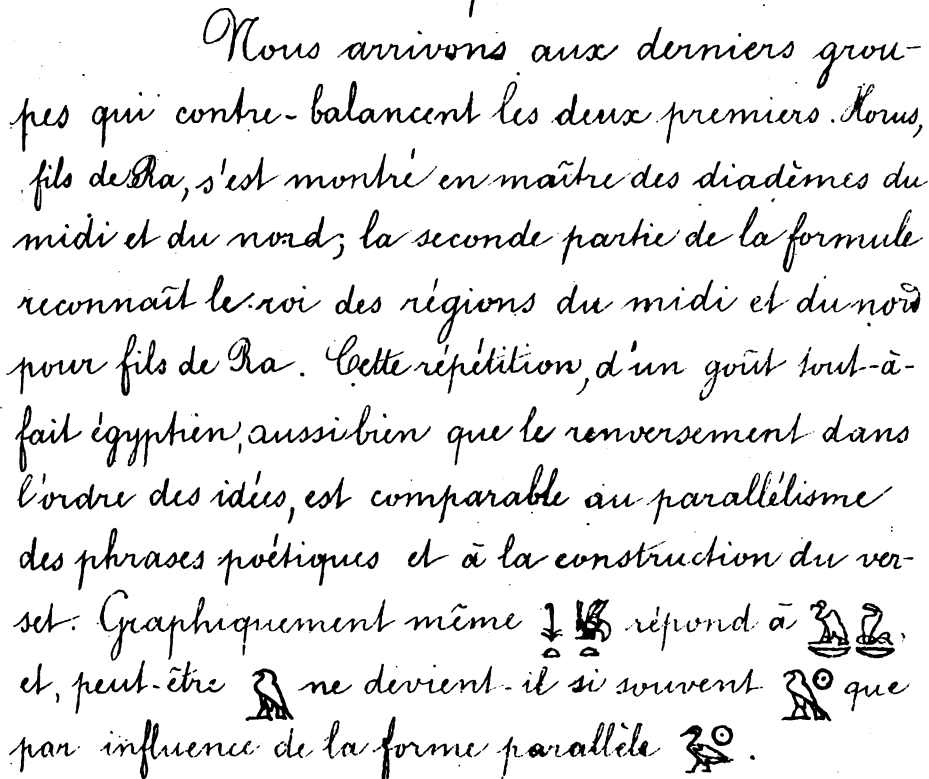 Nous arrivons aux derniers grou-
pes qui contre-balancent les deux premiers. Horus,
fils de Ra, s'est montré en maître des diadèmes du
midi et du nord; la seconde partie de la formule
reconnaît le roi des régions du midi et du nord
pour fils de Ra. Cette répétition, d'un goût tout-à-
fait égyptien, aussi bien que le renversement dans
l'ordre des idées, est comparable au parallélisme
des phrases poétiques et à la construction du ver-
set. Graphiquement même 𓇓𓏏𓆤𓏏 répond à 𓅒,
et, peut-être 𓅃 ne devient-il si souvent 𓅃𓇳 que
par influence de la forme parallèle 𓅭𓇳.